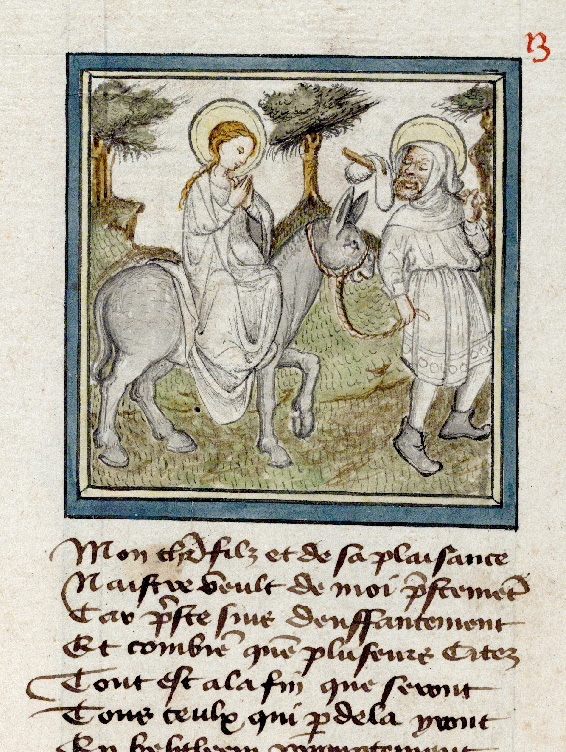 B
Mon chr̄ filz et de sa plaisance
Naistre veult de moi p̄stemēt
Car p̄ste suis denffantement
Et combiē quē pluseurs Citez
Tout est a la fin que seront
Tous ceulx qui p̄ dela yront
En bethleem